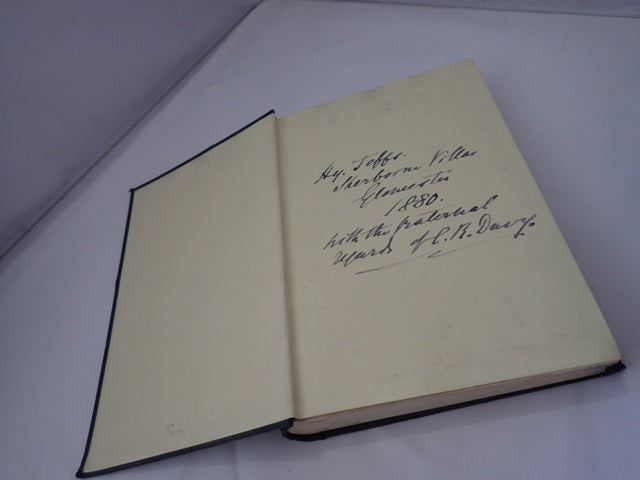 Hy. Jeffs.
Sherborne Villas
Gloucester
1880.
with the fraternal
regards of C. R. Davy.